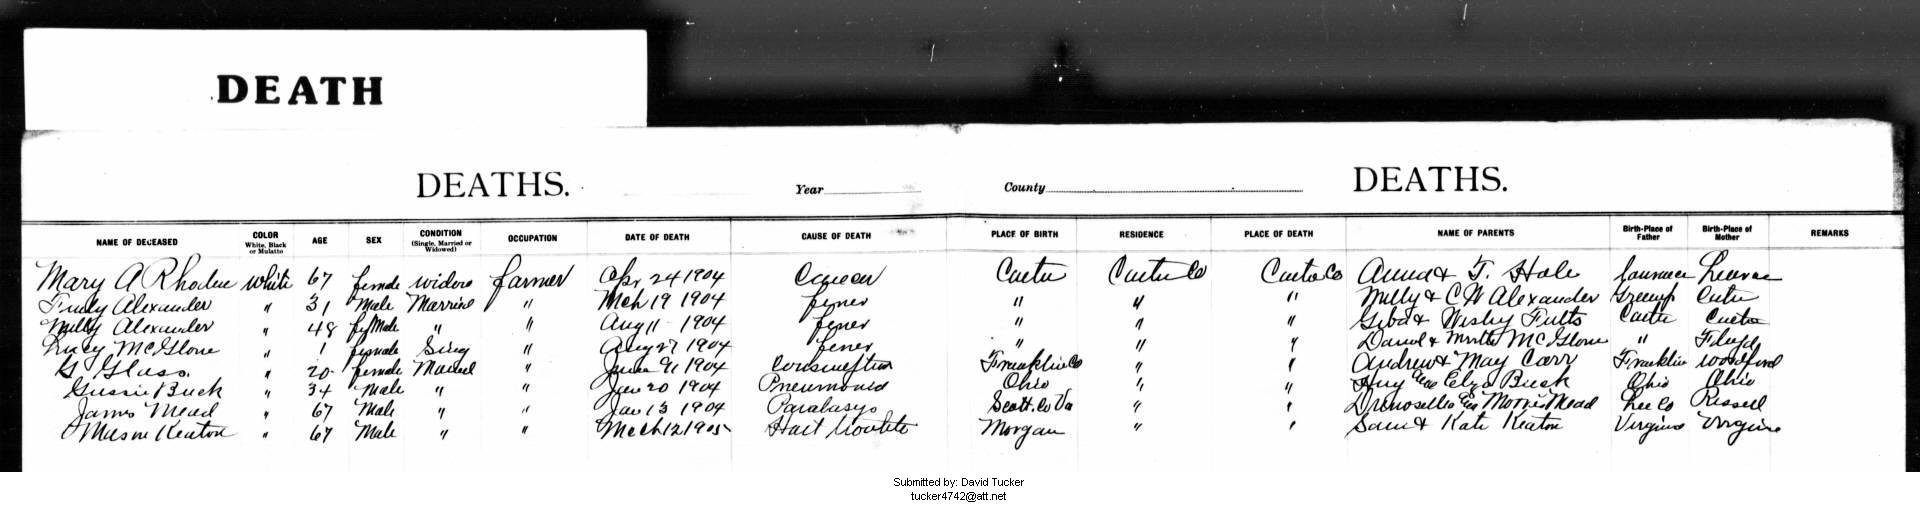 DEATH
DEATHS. Year County DEATHS.
NAME OF DECEASED COLOR White, Black or Mulatto AGE SEX CONDITION (Single, Married or Widowed) OCCUPATION DATE OF DEATH CAUSE OF DEATH PLACE OF BIRTH RESIDENCE PLACE OF DEATH NAME OF PARENTS Birth-Place of Father Birth-Place of Mother REMARKS
Mary A Rhoden white 67 female widow farmer Apr 24 1904 Cancer Carter Carter Co Carter Co Anna & T. Hale Lawrence
Alexander " 31 Male Married " Mch 19 1904 fever " " " Milly & C W Alexander Greenup Carter
Milly Alexander " 48 feMale " " Aug 11 1904 fever " " " & Fults Carter Carter
Lucy McGlone " 1 female Sing " Aug 27 1904 fever " " " David & McGlone " Floyd
G Glass. " 20 female Married " 9 1904 Franklin Co " " Andrew & May Carr Franklin Woodford
Gussie Buck " 34 Male " " Jan 20 1904 Pneumonia Ohio " " Buck Ohio Ohio
James Mead " 67 Male " Jan 13 1904 Paralasys Scott. Co Va " " Mead Lee Co Russell
Keaton " 67 Male " " Mch 12 1905 Hart Morgan " " Sam & Kate Keaton Virginia Virginia
Submitted by: David Tucker
tucker4742@att.net